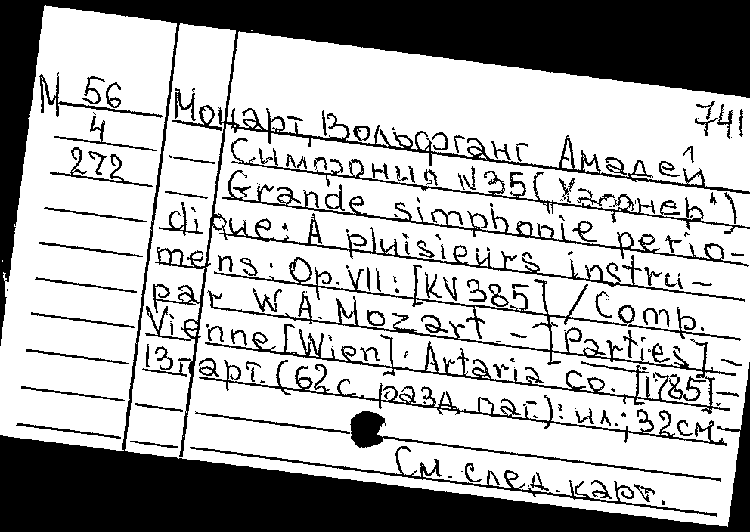 741
М 56
4
272
Моцарт, Вольфганг Амадей
Симфония N35 („Хафнер")
Grande simphonie perio-
dique: A pluisieurs instru-
mens: Op. VII: [KV 385] / Comp.
par W. A. Mozart. - [Parties] -
Vienne [Wien]: Artaria Co., [1785]. -
13 парт. (62 с. разд. паг.): ил.; 32 см.
См. след. карт.